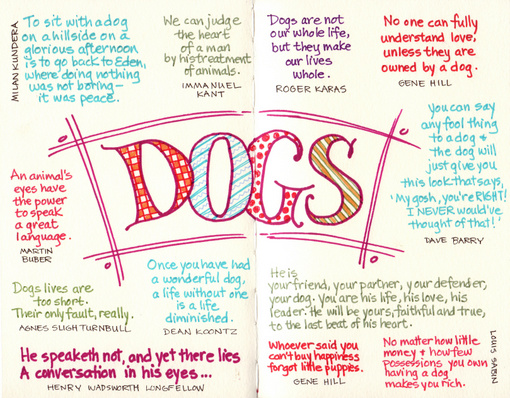 MILAN KUNDERA
To sit with a dog
on a hillside on a
glorious afternoon
is to go back to Eden,
where doing nothing
was not boring—
it was peace.
We can judge
the heart
of a man
by his treatment
of animals.
IMMANUEL
KANT
Dogs are not
our whole life,
but they make
our lives
whole.
ROGER KARAS
No one can fully
understand love,
unless they are
owned by a dog.
GENE HILL
You can say
any fool thing
to a dog &
the dog will
just give you
this look that says,
'My gosh, you're RIGHT!
I NEVER would've
thought of that!'
DAVE BARRY
DOGS
An animal's
eyes have
the power
to speak
a great
language.
MARTIN
BUBER
Dogs lives are
too short.
Their only fault, really.
AGNES SLIGH TURNBULL
Once you have had
a wonderful dog,
a life without one
is a life
diminished.
DEAN KOONTZ
He is
your friend, your partner, your defender,
your dog. You are his life, his love, his
leader. He will be yours, faithful and true,
to the last beat of his heart.
He speaketh not, and yet there lies
A conversation in his eyes...
HENRY WADSWORTH LONGFELLOW
Whoever said you
can't buy happiness
forgot little puppies.
GENE HILL
No matter how little
money & how few
possessions you own
having a dog
makes you rich.
LOUIS SABIN